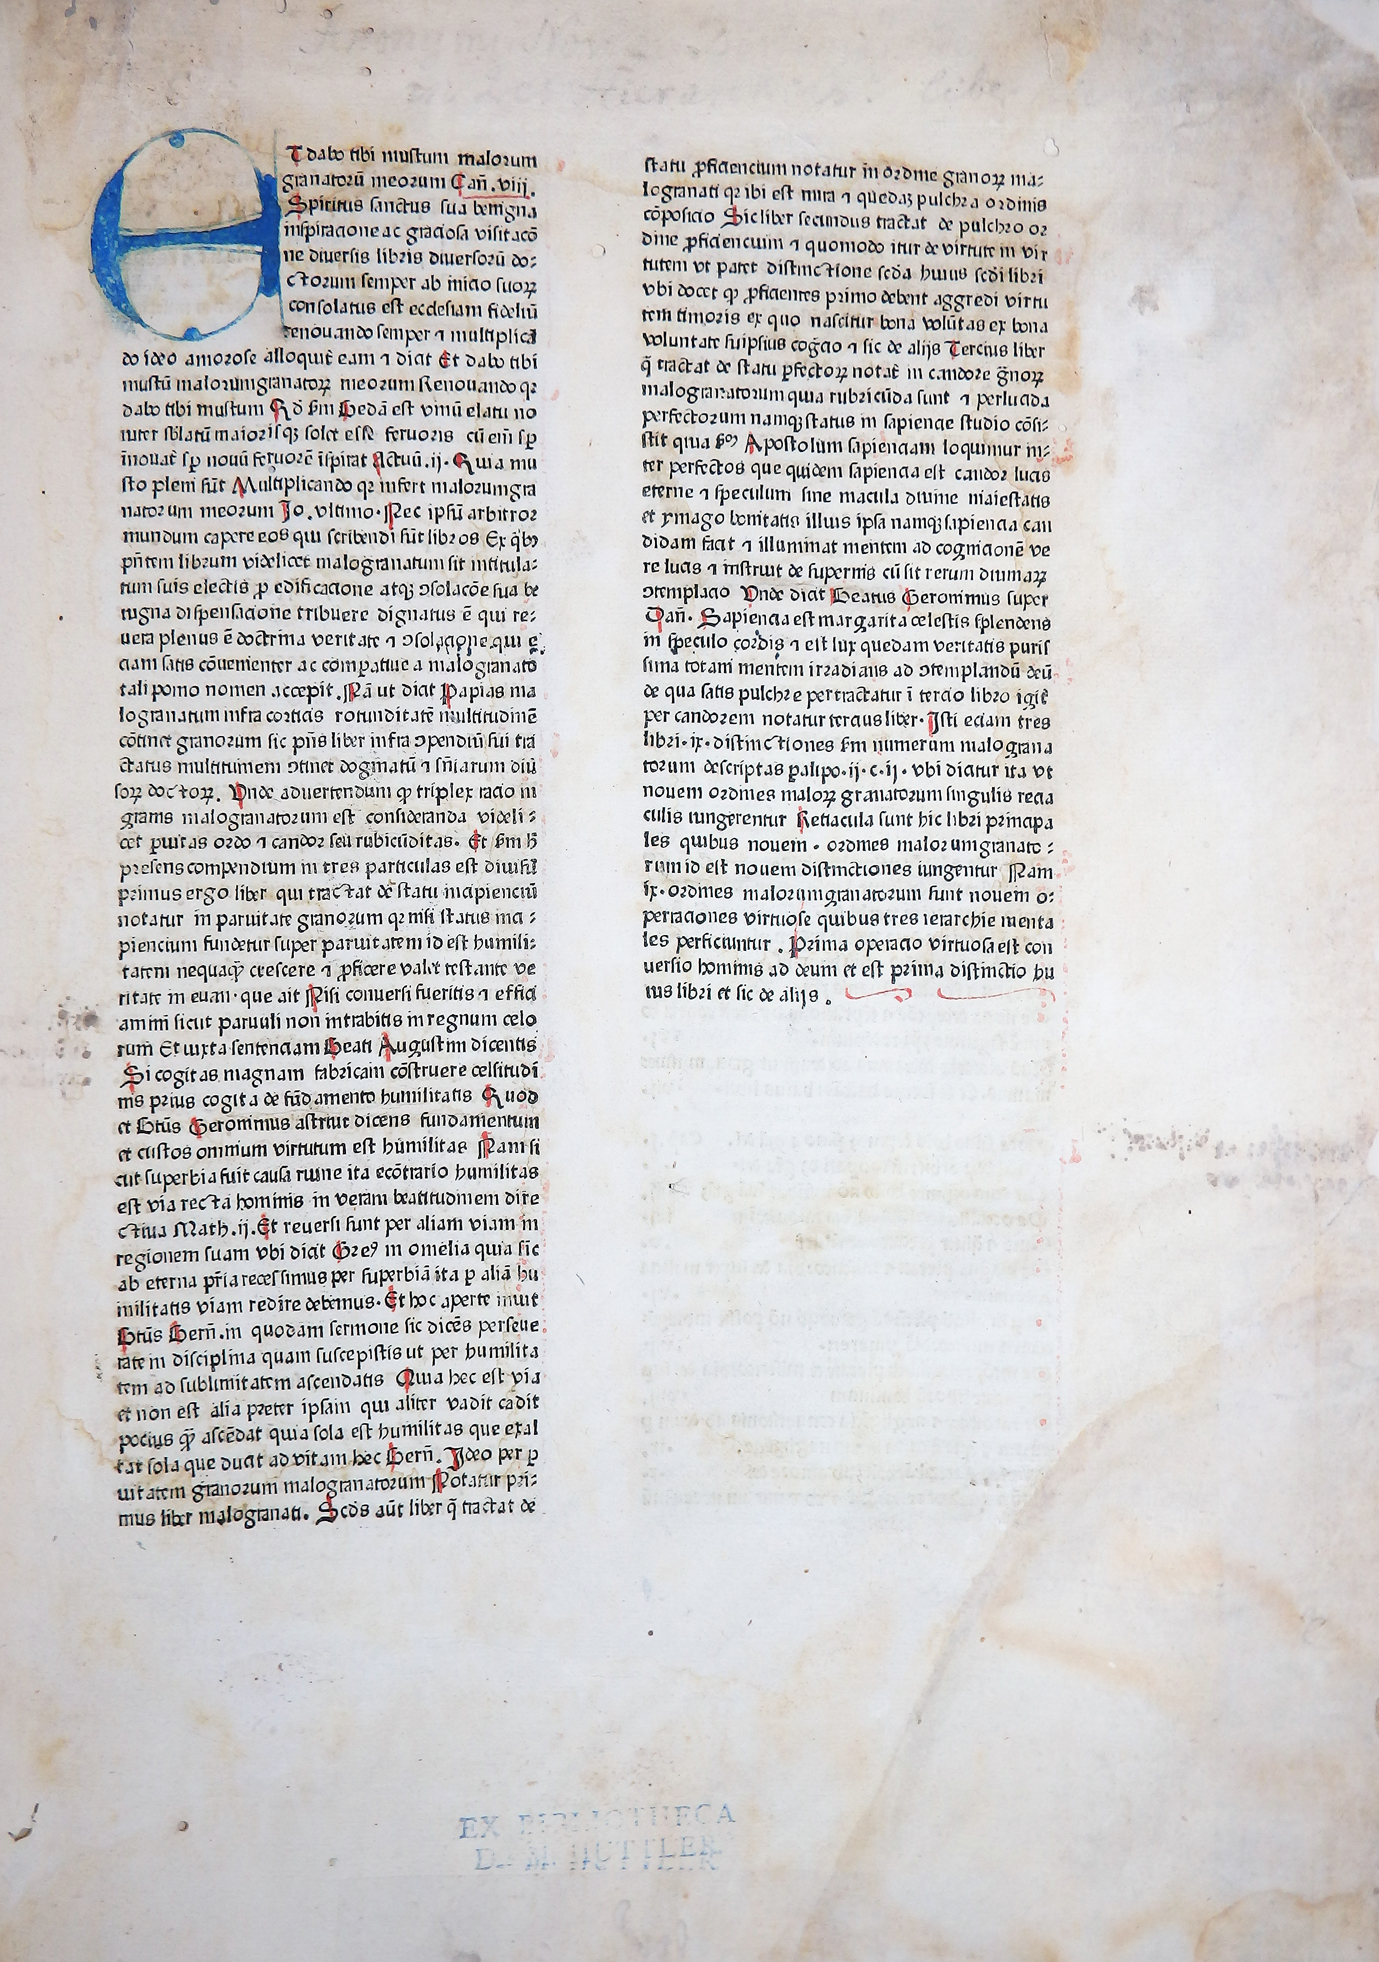 ET dabo tibi mustum malorum
granatorū meorum Cañ. viij.
Spiritus sanctus sua benigna
inspiracione ac graciosa visitacō
ne diuersis libris diuersorū do⸗
ctorum semper ab inicio suoꝝ
consolatus est ecclesiam fideliū
renouando semper ⁊ multiplicā
do ideo amorose alloquit̄ eam ⁊ dicit Et dabo tibi
mustū malorumgranatoꝝ meorum Renouando qꝛ
dabo tibi mustum Qd̄ ẜm Bedā est vinū elatū no
iuter maioris qꝫ solet esse feruoris cū eīm sp̄
īnouat̄ sp̄ nouū feruorē īspirat Actuū. ij. Quia mu
sto pleni sūt Multiplicando qꝛ infert malorumgra
natorum meorum Jo. vltimo. Nec ipsū arbitror
mundum capere eos qui scribendi sūt libros Ex q̄bꝰ
pn̄tem librum videlicet malogranatum sit intitula⸗
tum suis electis ꝓ edificacione atqꝫ ↄsolacōe sua be
nigna dispensacione tribuere dignatus ē qui re⸗
uera plenus ē doctrina veritate ⁊ ↄsolacione qui e
ciam satis cōuenienter ac compatiue a malogranato
tali pomo nomen accepit. Nā ut dicit Papias ma
logranatum infra corticis rotunditatē multitudinē
cōtinet granorum sic pn̄s liber infra ↄpendiū sui tra
ctatus multitudinem ↄtinet dogmatū ⁊ sn̄iarum diū
soꝝ doctoꝝ. Vnde aduertendum ꝙ triplex racio in
granis malogranatorum est consideranda videli⸗
cet ꝑuitas ordo ⁊ candor seu rubicūditas. Et ẜm h̄
presens compendium in tres particulas est diuisū
primus ergo liber qui tractat de statu incipienciū
notatur in paruitate granorum qꝛ nisi status inci⸗
piencium fundetur super paruitatem id est humili⸗
tatem nequaqꝫ crescere ⁊ ꝓficere valet testante ve
ritate in euan. que ait Nisi conuersi fueritis ⁊ effici
amini sicut paruuli non intrabitis in regnum celo
rum Et iuxta sentenciam Beati Augustini dicentis
Si cogitas magnam fabricam cōstruere celsitudi
nis prius cogita de fūdamento humilitatis Quod
et Btūs Geronimus astruit dicens fundamentum
et custos omnium virtutum est humilitas Nam si
cut superbia fuit causa ruine ita ecōtrario humilitas
est via recta hominis in veram beatitudinem dire
ctiua Math. ij. Et reuersi sunt per aliam viam in
regionem suam vbi dicit Greꝰ in omelia quia sic
ab eterna pr̄ia recessimus per superbiā ita ꝑ aliā hu
militatis viam redire debemus. Et hoc aperte inuit
Btūs Bern̄. in quodam sermone sic dicēs perseue
rate in disciplina quam suscepistis ut per humilita
tem ad sublimitatem ascendatis Quia hec est via
et non est alia preter ipsam qui aliter vadit cadit
pocius qꝫ ascēdat quia sola est humilitas que exal
tat sola que ducit ad vitam hec Bern̄. Ideo per ꝑ
uitatem granorum malogranatorum Notatur pri⸗
mus liber malogranati. Scd̄s aūt liber q̄ tractat de
statu ꝓficiencium notatur in ordine granoꝝ ma⸗
logranati qꝛ ibi est mira ⁊ quedaꝫ pulchra ordinis
cōposicio Sic liber secundus tractat de pulchro or
dine ꝓficiencium ⁊ quomodo itur de virtute in vir
tutem vt patet distinctione scd̄a huius scd̄i libri
vbi docet ꝙ ꝓficientes primo debent aggredi virtu
tem timoris ex quo nascitur bona volūtas ex bona
voluntate suipsius cogc̄io ⁊ sic de alijs Tercius liber
q̄ tractat de statu ꝑfectoꝝ notat̄ in candore g̃noꝝ
malogranatorum quia rubricūda sunt ⁊ perlucida
perfectorum namqꝫ status in sapiencie studio cōsi⸗
stit quia ẜꝫ Apostolum sapienciam loquimur in⸗
ter perfectos que quidem sapiencia est candor lucis
eterne ⁊ speculum sine macula diuine maiestatis
et ymago bonitatis illius ipsa namqꝫ sapiencia can
didam facit ⁊ illuminat mentem ad cognicionē ve
re lucis ⁊ instruit de supernis cū sit rerum diuinaꝝ
ↄtemplacio Vnde dicit Beatus Geronimus super
Dan̄. Sapiencia est margarita celestis splendens
in speculo cordis ⁊ est lux quedam veritatis puris
sima totam mentem irradians ad ↄtemplandū deū
de qua satis pulchre pertractatur ī tercio libro igit̄
per candorem notatur tercius liber. Isti eciam tres
libri. ix. distinctiones ẜm numerum malograna
torum descriptas ꝑalipo. ij. c. ij. vbi dicitur ita vt
nouem ordines maloꝝ granatorum singulis recia
culis iungerentur Retiacula sunt hic libri principa
les quibus nouem. ordines malorumgranato⸗
rum id est nouem distinctiones iungentur Nam
ix. ordines malorumgranatorum sunt nouem o⸗
peraciones virtuose quibus tres ierarchie menta
les perficiuntur. Prima operacio virtuosa est con
uersio hominis ad deum et est prima distinctio hu
ius libri et sic de alijs.
EX BIBLIOTHECA
Dr. M. HUTTLER